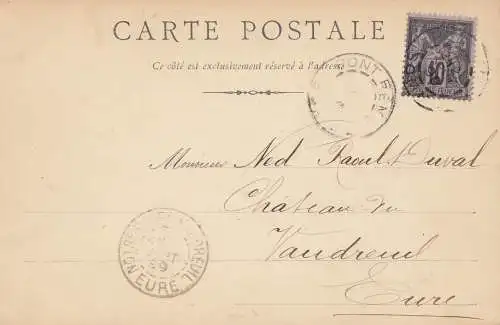 CARTE POSTALE
Ce côté est exclusivement réservé à l'adresse
PONT REM
10
Monsieur Ned Raoul Duval
Château du
Vaudreuil
Eure
EURE